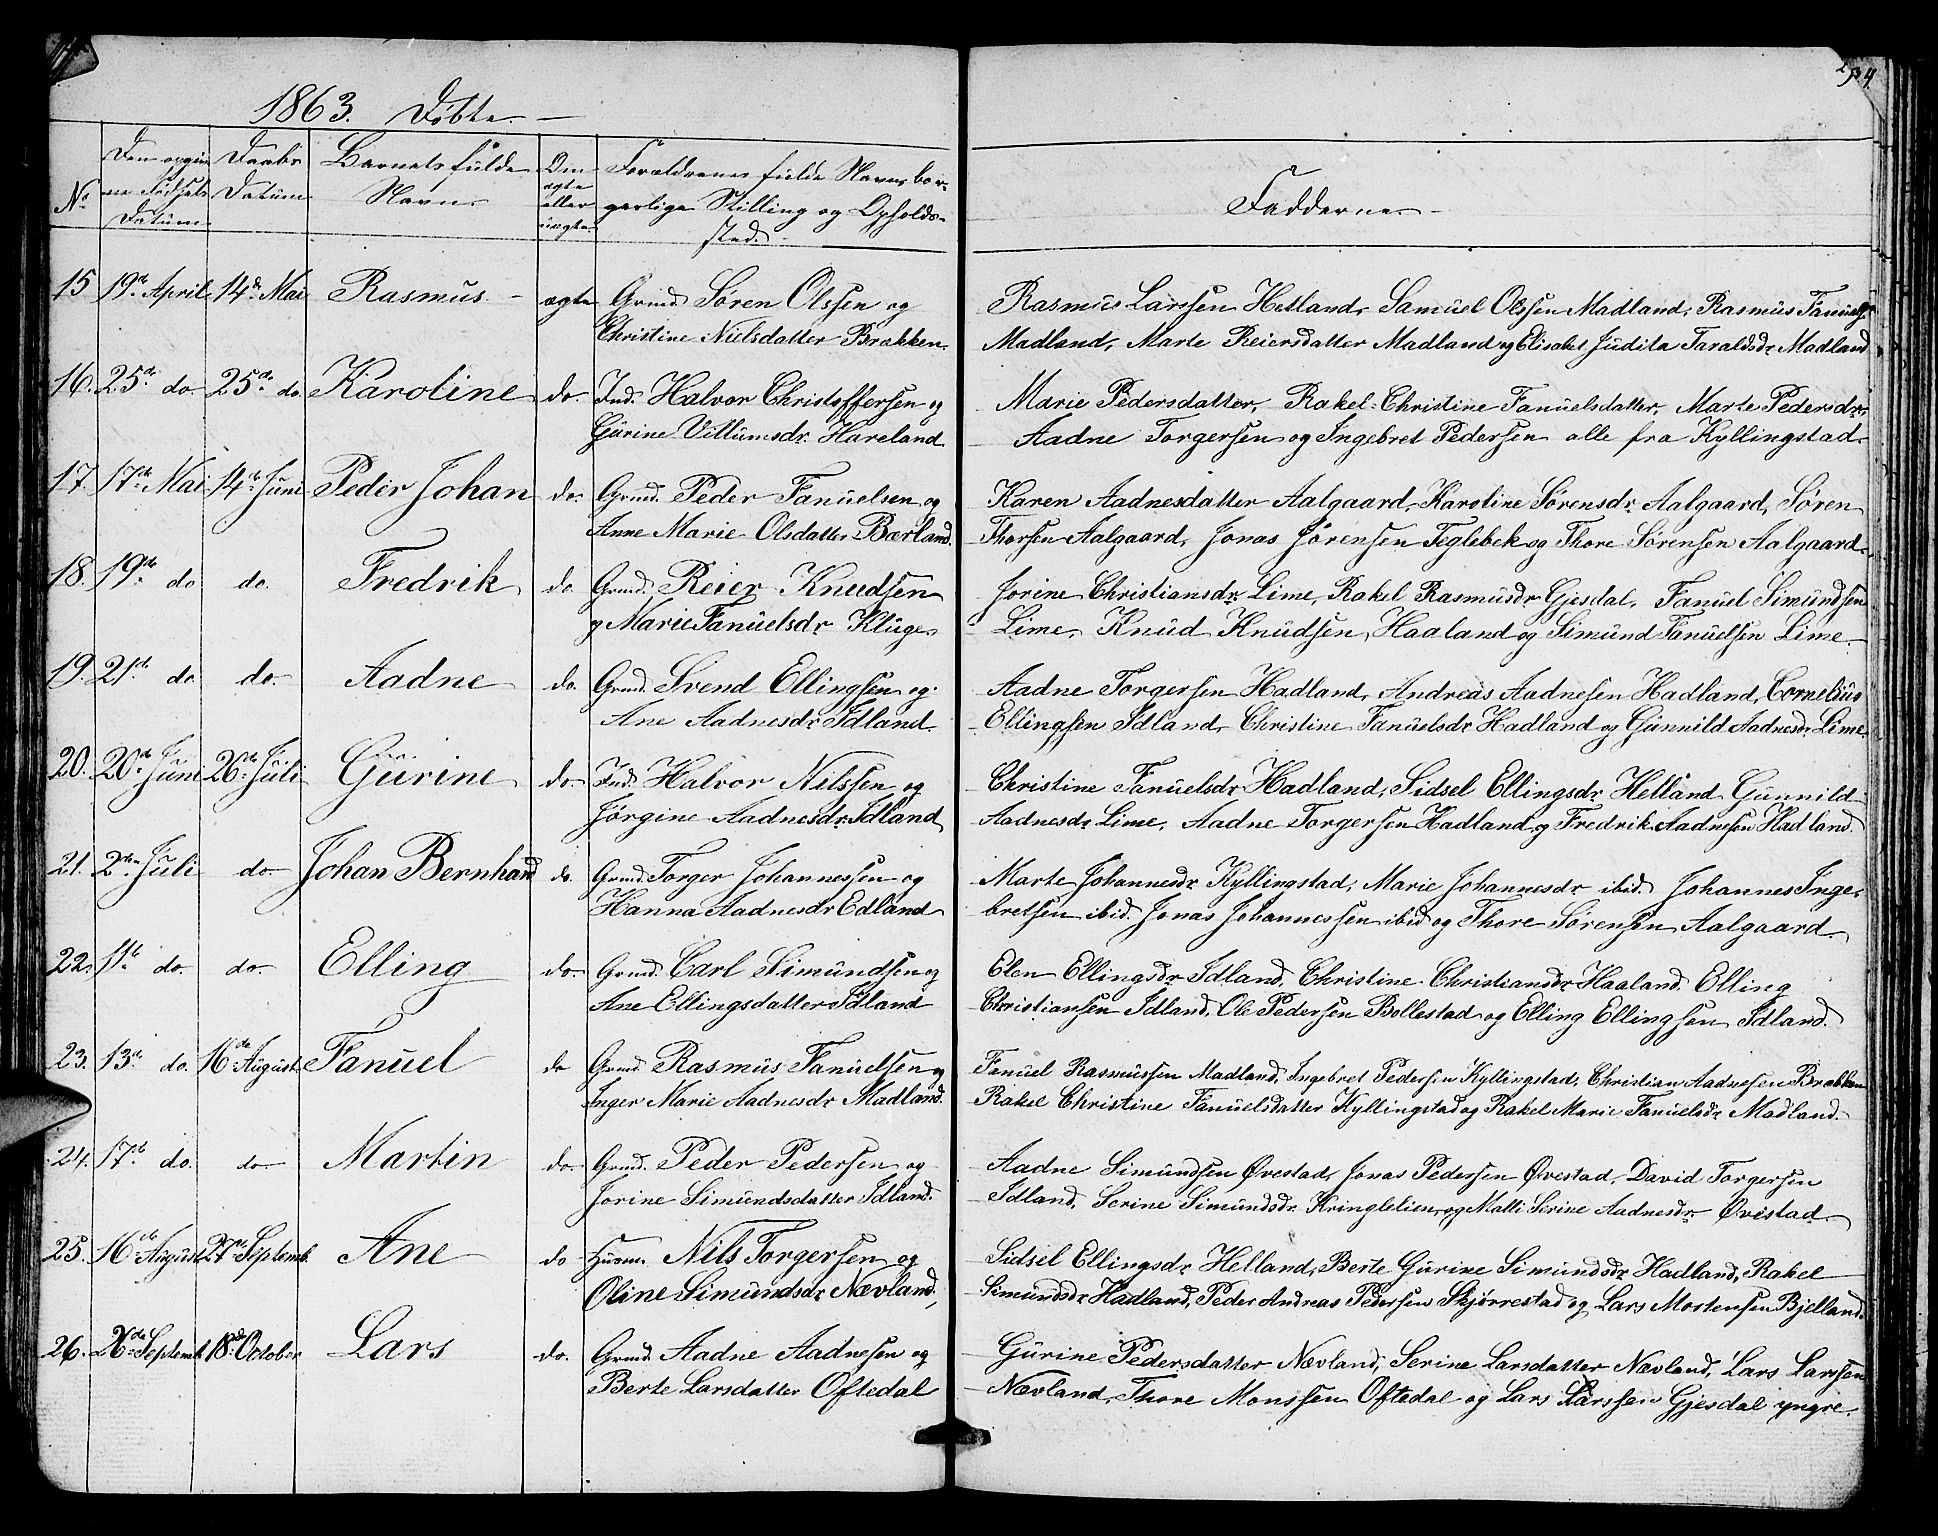 1863. Døbte.
No
Den opgivne Fødsels Datum
Daabs Datum
Barnets fulde Navn
Om ægte eller uægte
Forældrenes fulde Navne, borgerlige Stilling og Opholdssted.
Faddernes
15 19de April 14de Mai Rasmus ægte Grmd. Søren Olssen og
Christine Nielsdatter Brækken.
Rasmus Larssen Hetland, Samuel Olssen Madland, Rasmus Fanuels.
Madland, Marte Reiersdatter Madland og Elisabet Judita Taraldsdr. Madland
16. 25de do. 25de do. Karoline do. Ind. Halvor Christoffersen og
Gurine Villumsdr. Hareland
Marie Pedersdatter, Rakel Christine Fanuelsdatter, Marte Pedersdr.
Aadne Torgersen og Ingebret Pedersen alle fra Kyllingstad.
17. 17de Mai 14de Juni Peder Johan do. Grmd. Peder Fanuelsen og
Anne Marie Olsdatter Bærland.
Karen Aadnesdatter Aalgaard, Karoline Sørensdr. Aalgaard, Søren
Thorsen Aalgaard, Jonas Jørensen Teglebek og Thore Sørensen Aalgaard.
18. 19de do do. Fredrik do. Grmd. Reier Knudsen
og Marie Fanuelsdr. Kluge.
Jorine Christiansdr. Lime, Rakel Rasmusdr. Gjesdal, Fanuel Simundsen
Lime, Knud Knudsen Haaland og Simund Fanuelsen Lime.
19. 21de do do. Aadne do. Grmd. Svend Ellingsen og
Ane Aadnesdr. Idland.
Aadne Torgersen Hadland, Andreas Aadnesen Hadland, Cornelius
Ellingsen Idland, Christine Fanuelsdr. Hadland og Gunnild Aadnesdr. Lime.
20. 20de Juni 26de Juli Gurine do. Ind. Halvor Nilssen og
Jørgine Aadnesdr. Idland
Christine Fanuelsdr. Hadland, Sidsel Ellingsdr. Helland Gunnild
Aadnesdr. Lime, Aadne Torgersen Hadland og Fredrik Aadnesen Hadland.
21. 2den Juli do. Johan Bernhard do. Grmd. Torger Johannessen og
Hanna Aadnesdr. Edland
Marte Johannesdr. Kyllingstad, Marie Johannesdr. ibid. Johannes Inge-
bretsen ibid. Jonas Johannessen ibid og Thore Sørensen Aalgaard.
22. 11te do. do. Elling do. Grmd. Carl Simundsen og
Ane Ellingsdatter Idland
Elen Ellingsdr. Idland, Christine Christiansdr. Haaland. Elling
Christiansen Idland, Ole Pedersen Bollestad og Elling Ellingsen Idland.
23. 13de do. 16de August Fanuel do Grmd. Rasmus Fanuelsen og
Inger Marie Aadnesdr. Madland.
Fanuel Rasmussen Madland, Ingebret Pedersen Kyllingstad, Christian Aadnesen Brækken
Rakel Christine Fanuelsdatter Kyllingstad og Rakel Marie Fanuelsdr. Madland.
24. 17de do. do Martin do. Grmd. Peder Pedersen og
Jorine Simundsdatter Idland.
Aadne Simundsen Øvestad, Jonas Pedersen Øvestad, David Torgersen
Idland, Serine Simundsdr. Kringlelien og Malli Serine Aadnesdr. Øvestad
25. 16de August 27de Septemb. Ane do Husm. Nils Torgersen og
Oline Simundsdr. Nævland,
Sidsel Ellingsdr. Helland, Berte Gurine Simundsdr. Hadland, Rakel
Simundsdr. Hadland, Peder Andreas Pedersen Skjørrestad og Lars Mortensen Bjelland.
26. 26de Septemb. 18de October Lars do. Grmd. Aadne Aadnesen og
Berte Larsdatter Oftedal
Gurine Pedersdatter Nævland, Serine Larsdatter Nævland, Lars Larssen
Nævland, Thore Monssen Oftedal og Lars Larssen Gjesdal yngre.